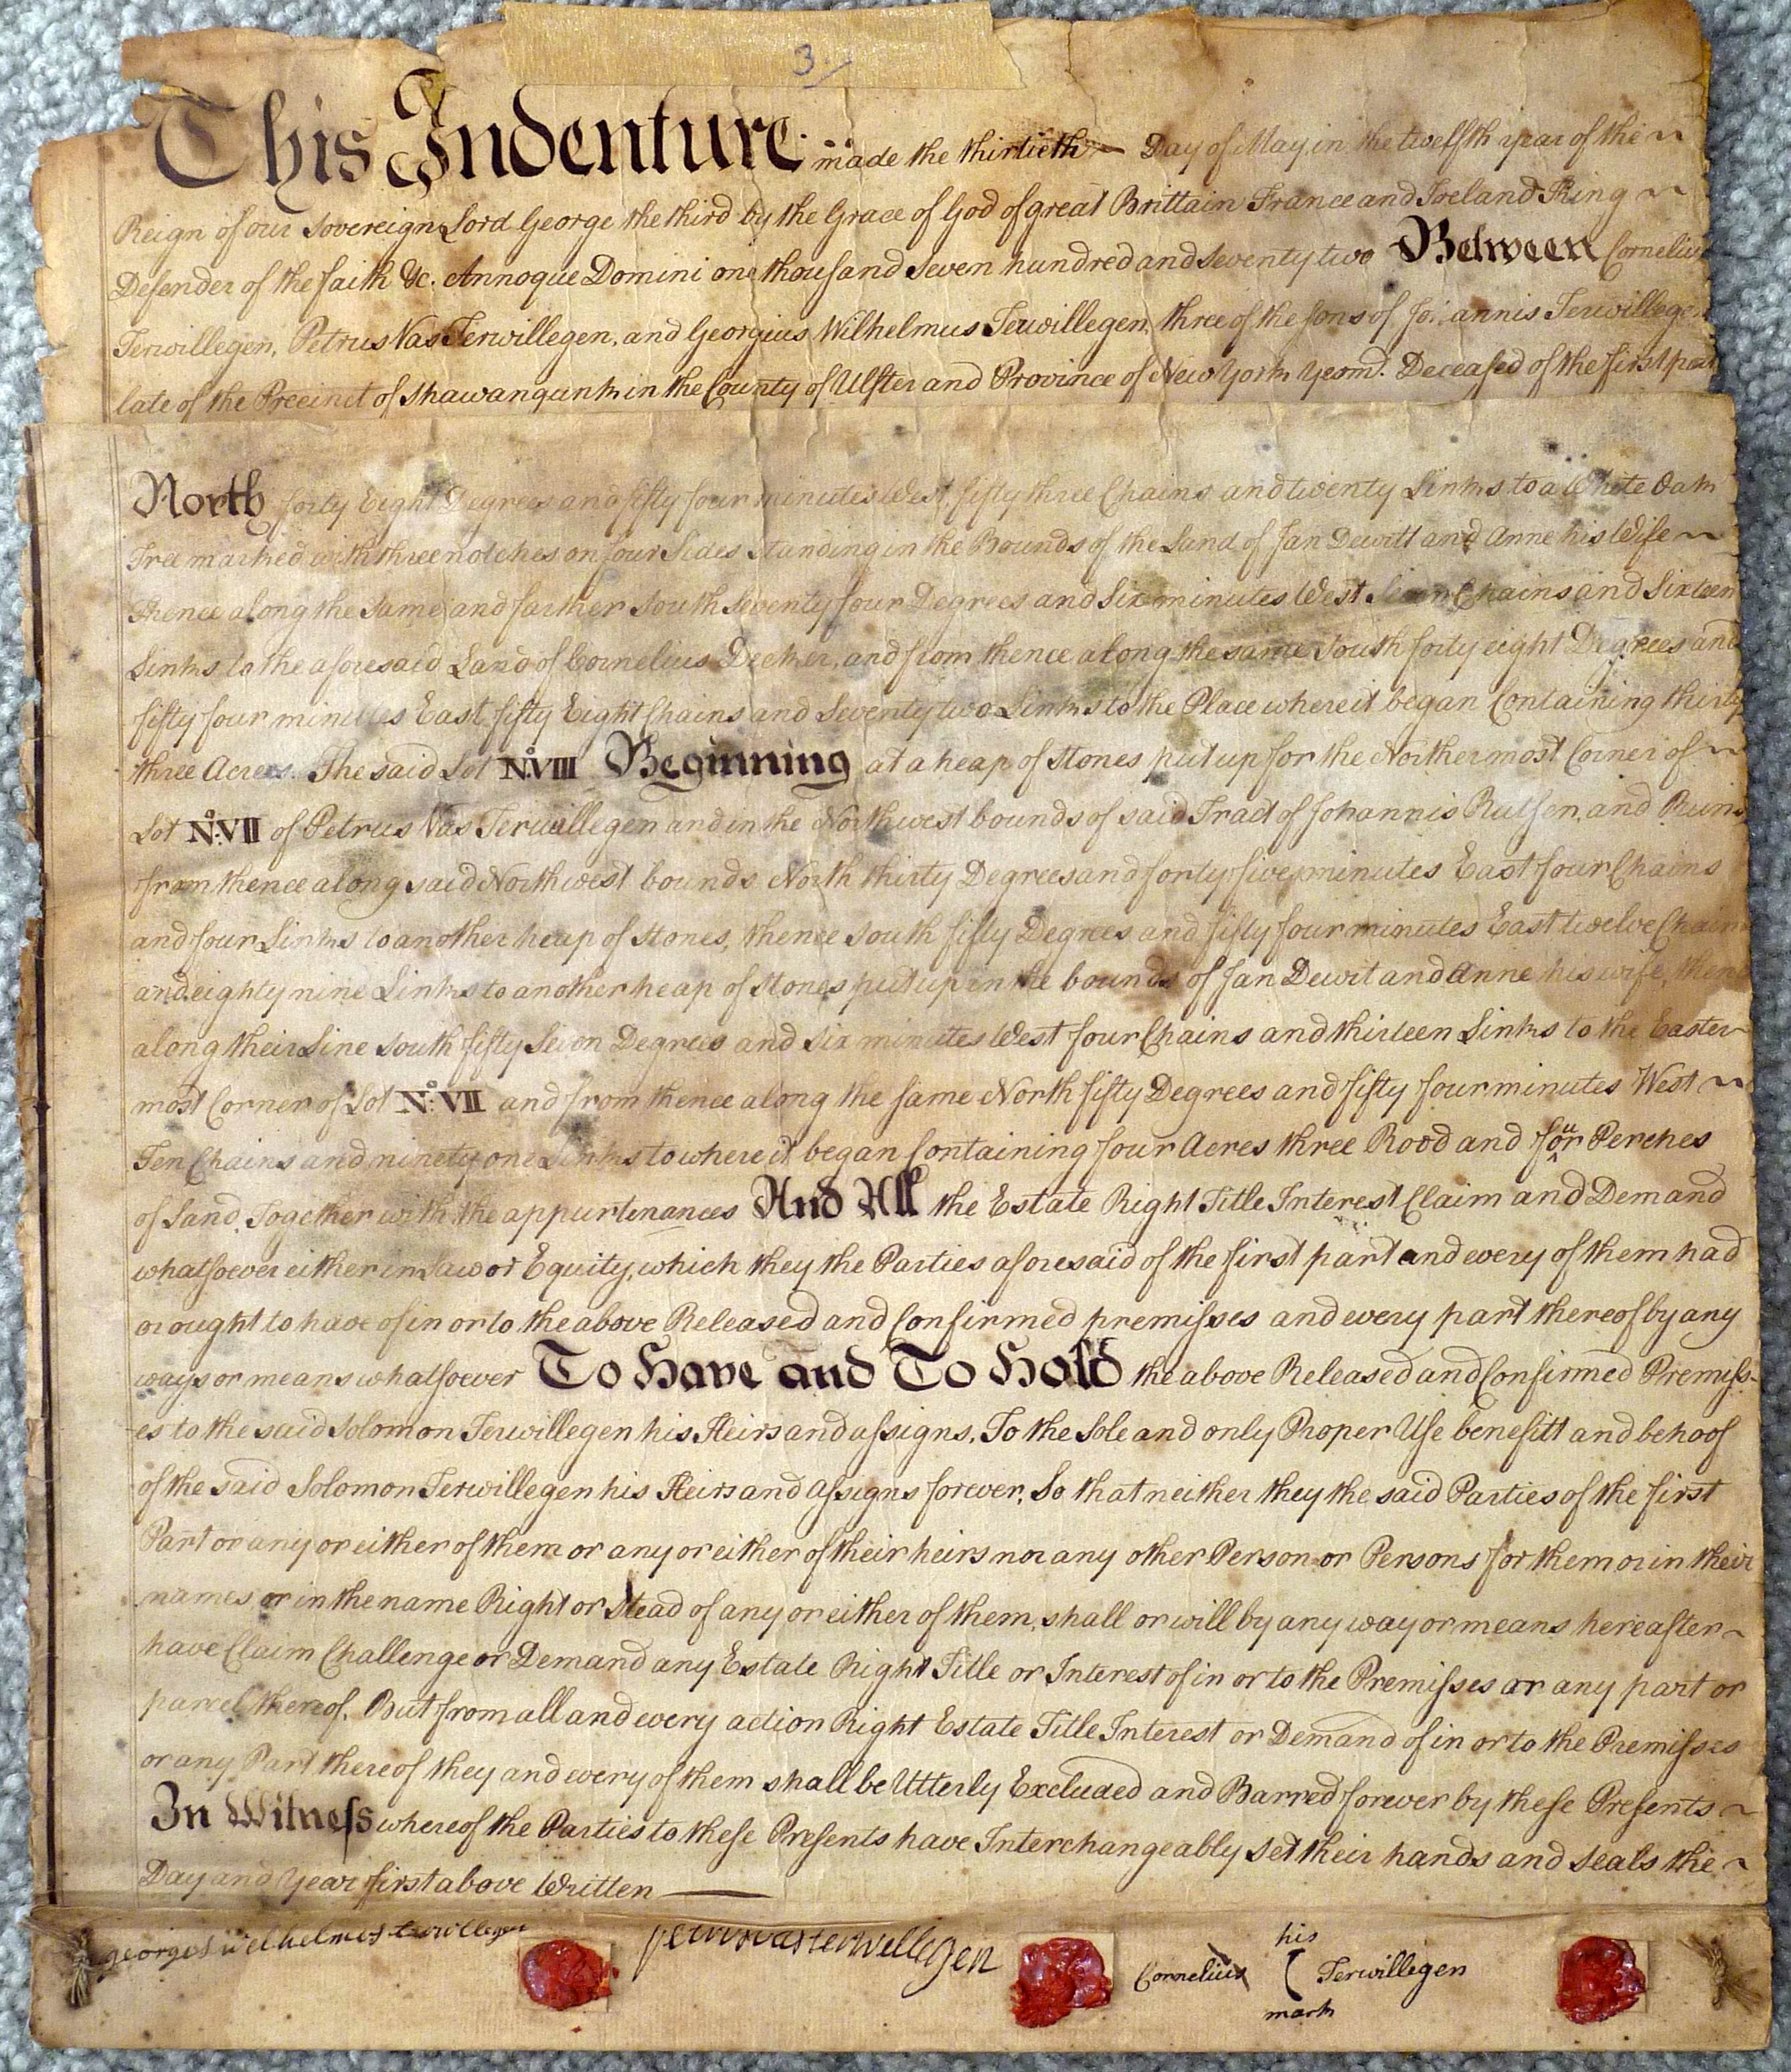 3
This Indenture made the thirtieth Day of May in the twelfth year of the
Reign of our Sovereign Lord George the third by the Grace of God of great Brittain France and Ireland King
Defender of the faith &c. Annoque Domini one thousand Seven hundred and seventy two Between Cornelius
Terwillegen, Petrus Vas Terwillegen, and Georgius Wilhelmus Terwillegen, three of the sons of Johannis Terwillegen
late of the Precinct of Shawangunk in the County of Ulster and Province of New York Yeomn. Deceased of the first part
North forty Eight Degrees and fifty four minutes West, fifty three Chains and twenty Links to a White Oak
Tree marked with three notches on four Sides Standing in the Bounds of the Land of Jan Dewitt and Anne his Wife
Thence along the Same and farther South Seventy four Degrees and Six minutes West Seven Chains and Sixteen
Links to the aforesaid Land of Cornelius Decker, and from thence along the same South forty eight Degrees and
fifty four minutes East fifty Eight Chains and Seventy two Links to the Place where it began Containing thirty
three Acres. The said Lot No: VIII Beginning at a heap of Stones put up for the Northermost Corner of
Lot No: VII of Petrus Vas Terwillegen and in the Northwest bounds of said Tract of Johannis Rutsen, and Runs
from thence along said Northwest bounds North thirty Degrees and forty five minutes East four Chains
and four Links to another heap of Stones, thence South fifty Degrees and fifty four minutes East twelve Chains
and eighty nine Links to another heap of Stones put up in the bounds of Jan Dewit and Anne his wife, thence
along their Line South fifty Seven Degrees and Six minutes West four Chains and thirteen Links to the Easter
most Corner of Lot No: VII and from thence along the same North fifty Degrees and fifty four minutes West
Ten Chains and ninety one Links to where it began Containing four Acres three Rood and four Perches
of Land. Together with the appurtenances And All the Estate Right Title Interest Claim and Demand
whatsoever either in Law or Equity, which they the Parties aforesaid of the first part and every of them had
or ought to have of in or to the above Released and Confirmed premisses and every part thereof by any
ways or means whatsoever To Have and To Hold the above Released and Confirmed Premiss-
es to the said Solomon Terwillegen his Heirs and assigns, To the Sole and only Proper Use benefitt and behoof
of the said Solomon Terwillegen his Heirs and Assigns forever, So that neither they the said Parties of the first
Part or any or either of them or any or either of their heirs nor any other Person or Persons for them or in their
names or in the name Right or Stead of any or either of them, shall or will by any way or means hereafter
have Claim Challenge or Demand any Estate Right Title or Interest of in or to the Premisses or any part or
parcel thereof. But from all and every action Right Estate Title Interest or Demand of in or to the Premisses
or any Part thereof they and every of them shall be Utterly Excluded and Barred forever by these Presents
In Witness whereof the Parties to these Presents have Interchangeably Set their hands and seals the
Day and Year first above Written
georges wilhelmes terwillegen petrus vas terwellegen Cornelius his mark Terwillegen